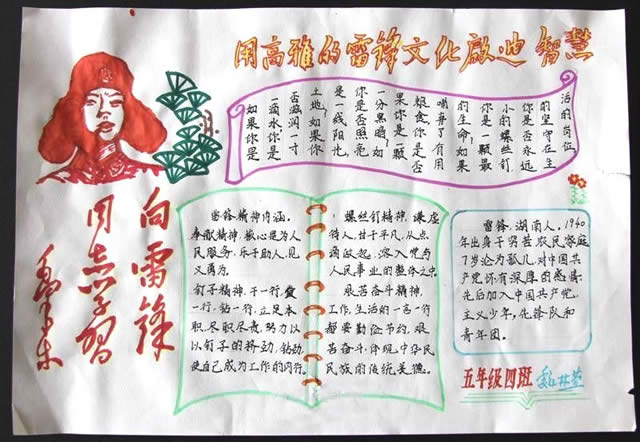 用高雅的雷锋文化啟迪智慧
如果你是
一滴水你是
否滋润一寸
土地如果你
是一线阳光
你是否照亮
一分黑暗如
果你是一颗
粮食你是否
哺育了有用
的生命如果
你是一颗最
小的螺丝钉
你是否永远
的坚守在生
活的岗位
向雷锋
同志学习
毛泽东
雷锋精神内涵。
奉献精神，核心是为人
民服务，乐于助人，见
义勇为。
钉子精神，干一行，爱
一行，钻一行，立足本
职，尽职尽责，努力以
以钉子的挤劲，钻劲
使自己成为工作的内行。
螺丝钉精神，谦虚
待人，甘于平凡，从点
滴做起，溶入党与
人民事业的整体之中。
艰苦奋斗精神，
工作，生活的一言一行
都要勤俭节约，艰
苦奋斗，体现中华民
民族的传统美德。
雷锋，湖南人。1940
年出身于穷苦农民家庭
7岁沦为孤儿，对中国共
产党怀有深厚的感情。
先后加入中国共产党。
主义少年，先锋队和
青年团。
五年级四班